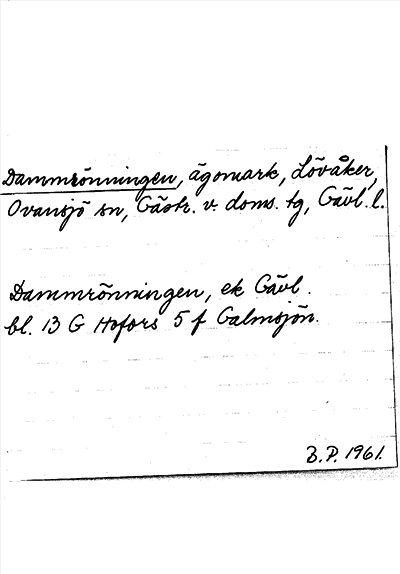 Dammrönningen, ägomark, Lövåker,
Ovansjö sn, Gästr. v. doms. tg, Gävl. l.
Dammrönningen, ek Gävl.
bl. 13 G Hofors 5 f Galmsjön.
B.P. 1961.